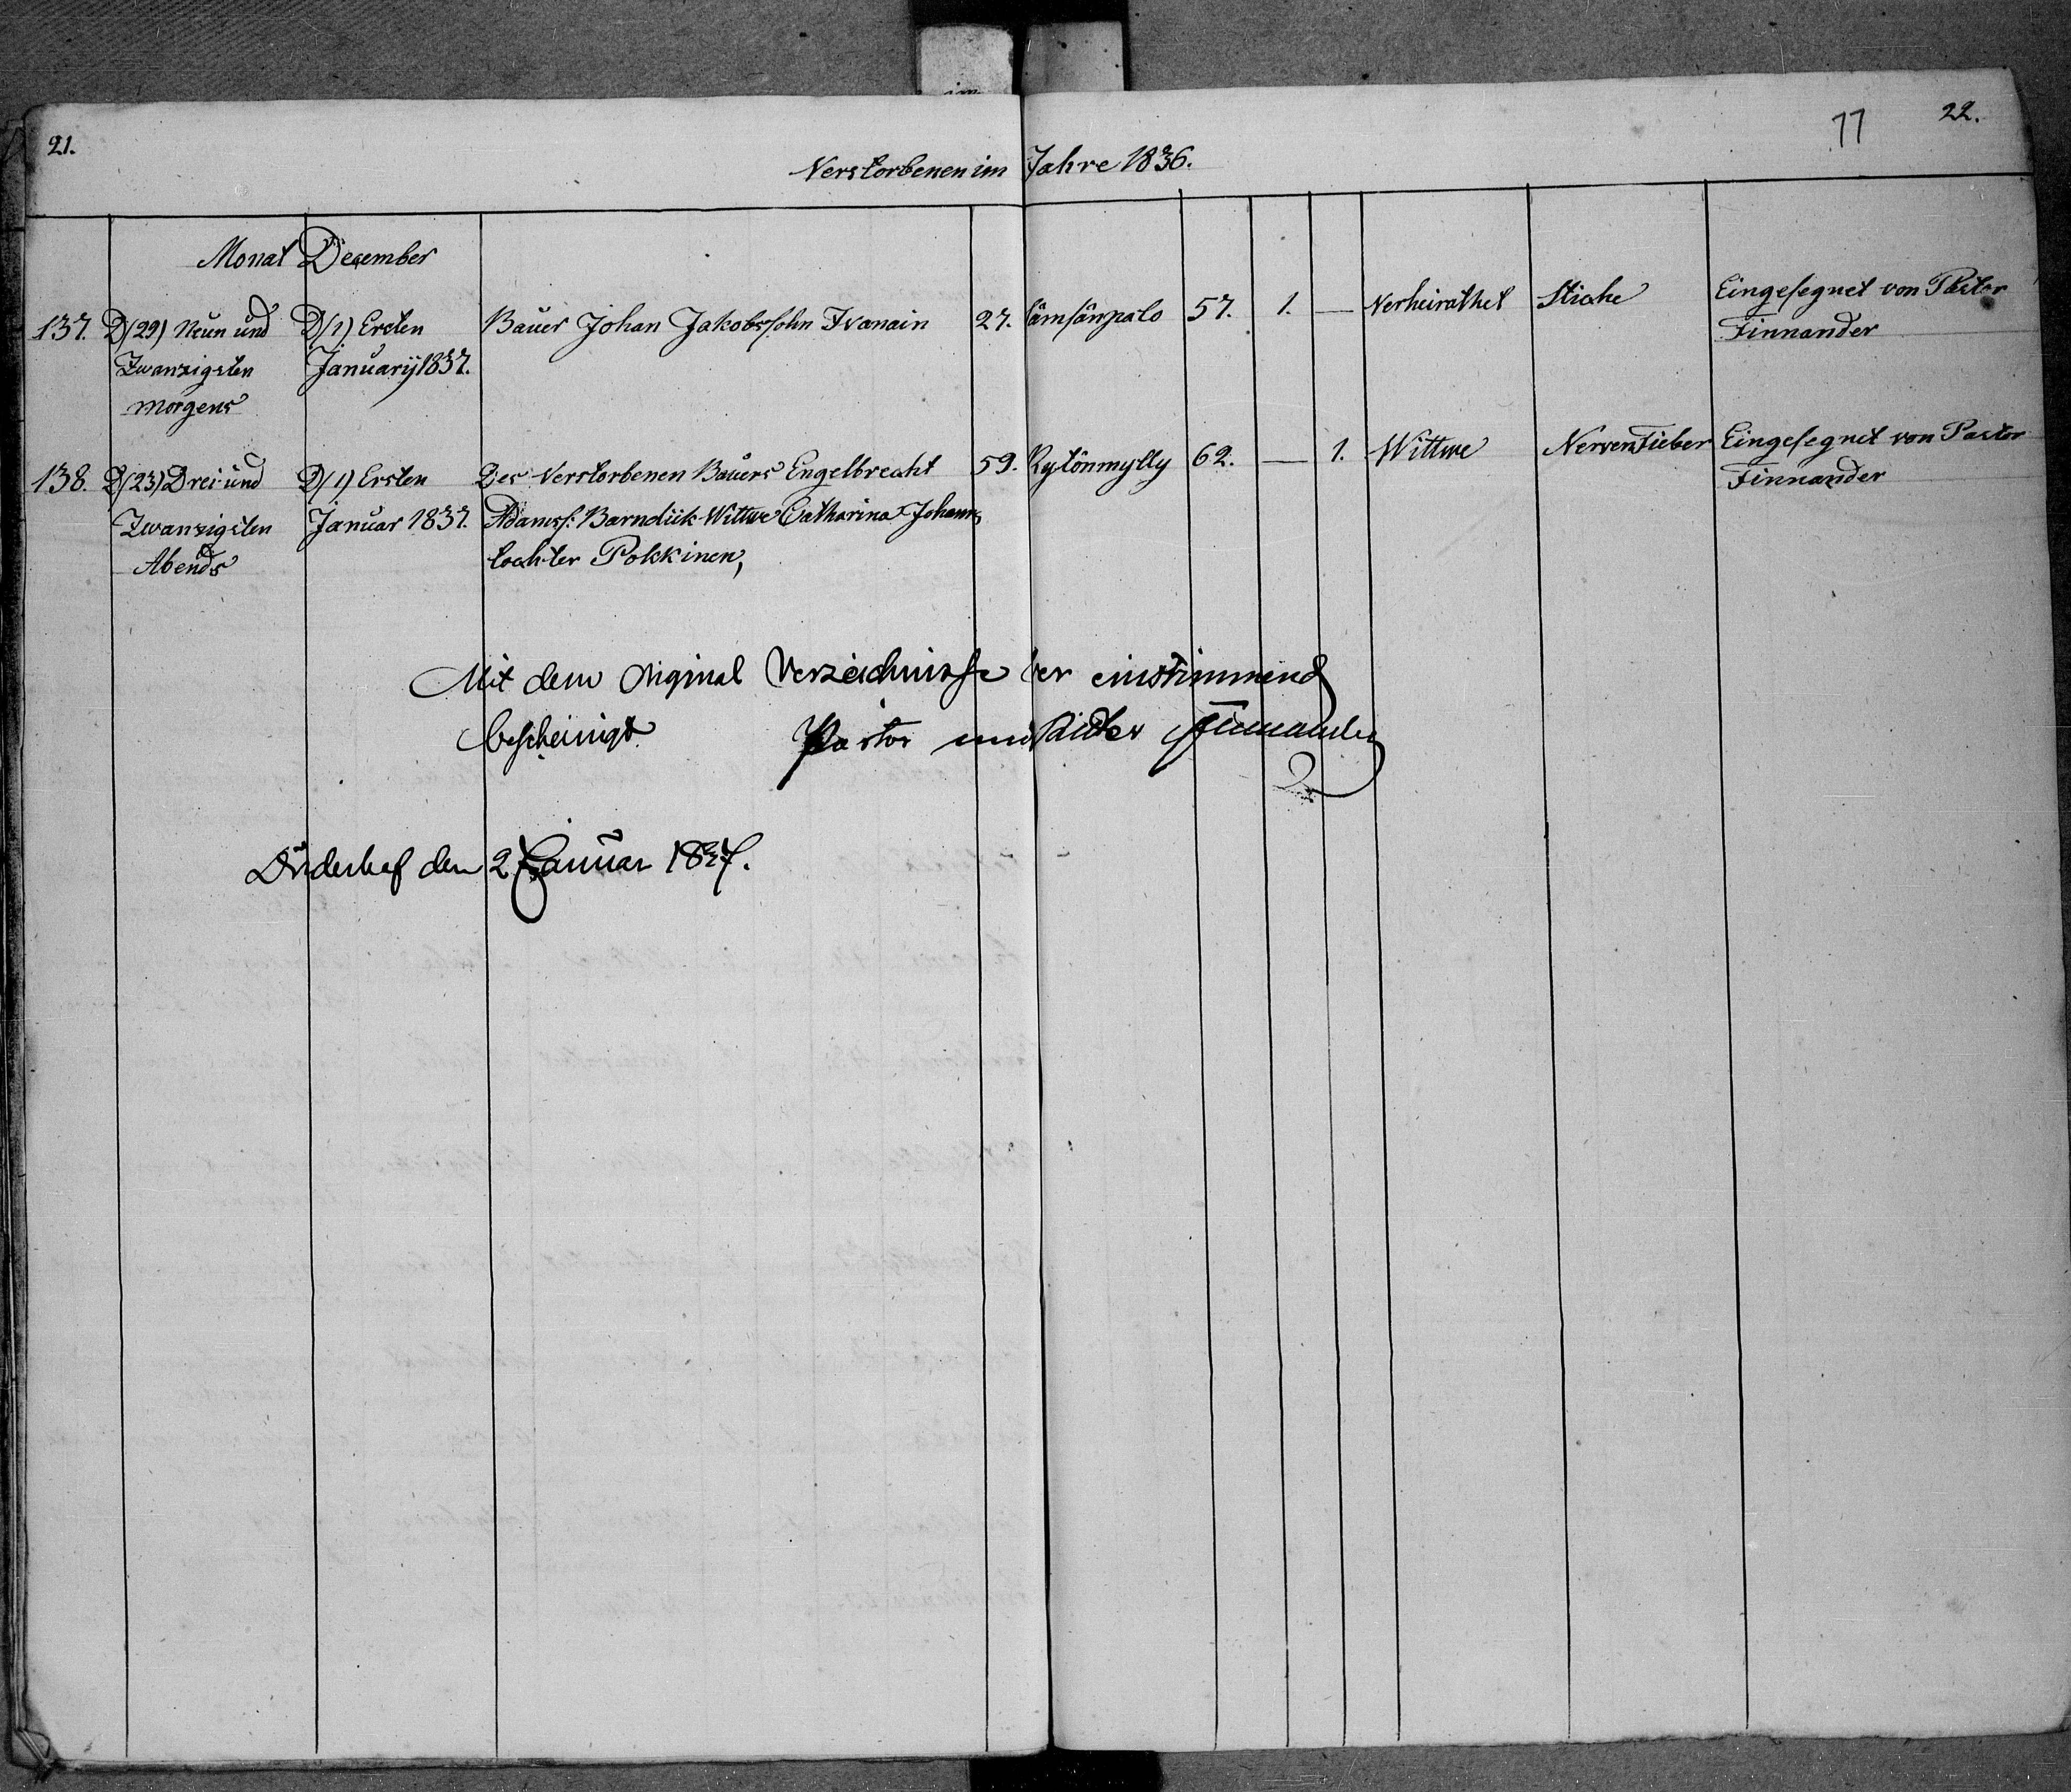 21.
77
22.
Verstorbenen im Jahre 1836.
Monat December
137. D/29) Neun und D/1) Ersten Bauer Johan Jakobssohn Ivanain 27. Lämsänpalo 57. 1. — Verheirathet Stiche Eingesegnet von Pastor
Zwanzigsten Januarÿ 1837. Finnander
Morgens
138. D/23) Drei und D/1) Ersten Des Verstorbenen Bauers Engelbrecht 59. Rytönmylly 62. — 1. Wittwe Nervenfieber Eingesegnet von Pastor
Zwanzigsten Januar 1837. Adamss: Barndük Wittwe Catharina Johanns Finnander
Abends tochter Pokkinen,
Mit dem Original Verzeichnisse ver einstimmend
bescheinigt Pastor und Ritter Finnander
Düderhof den 2 Januar 1837.